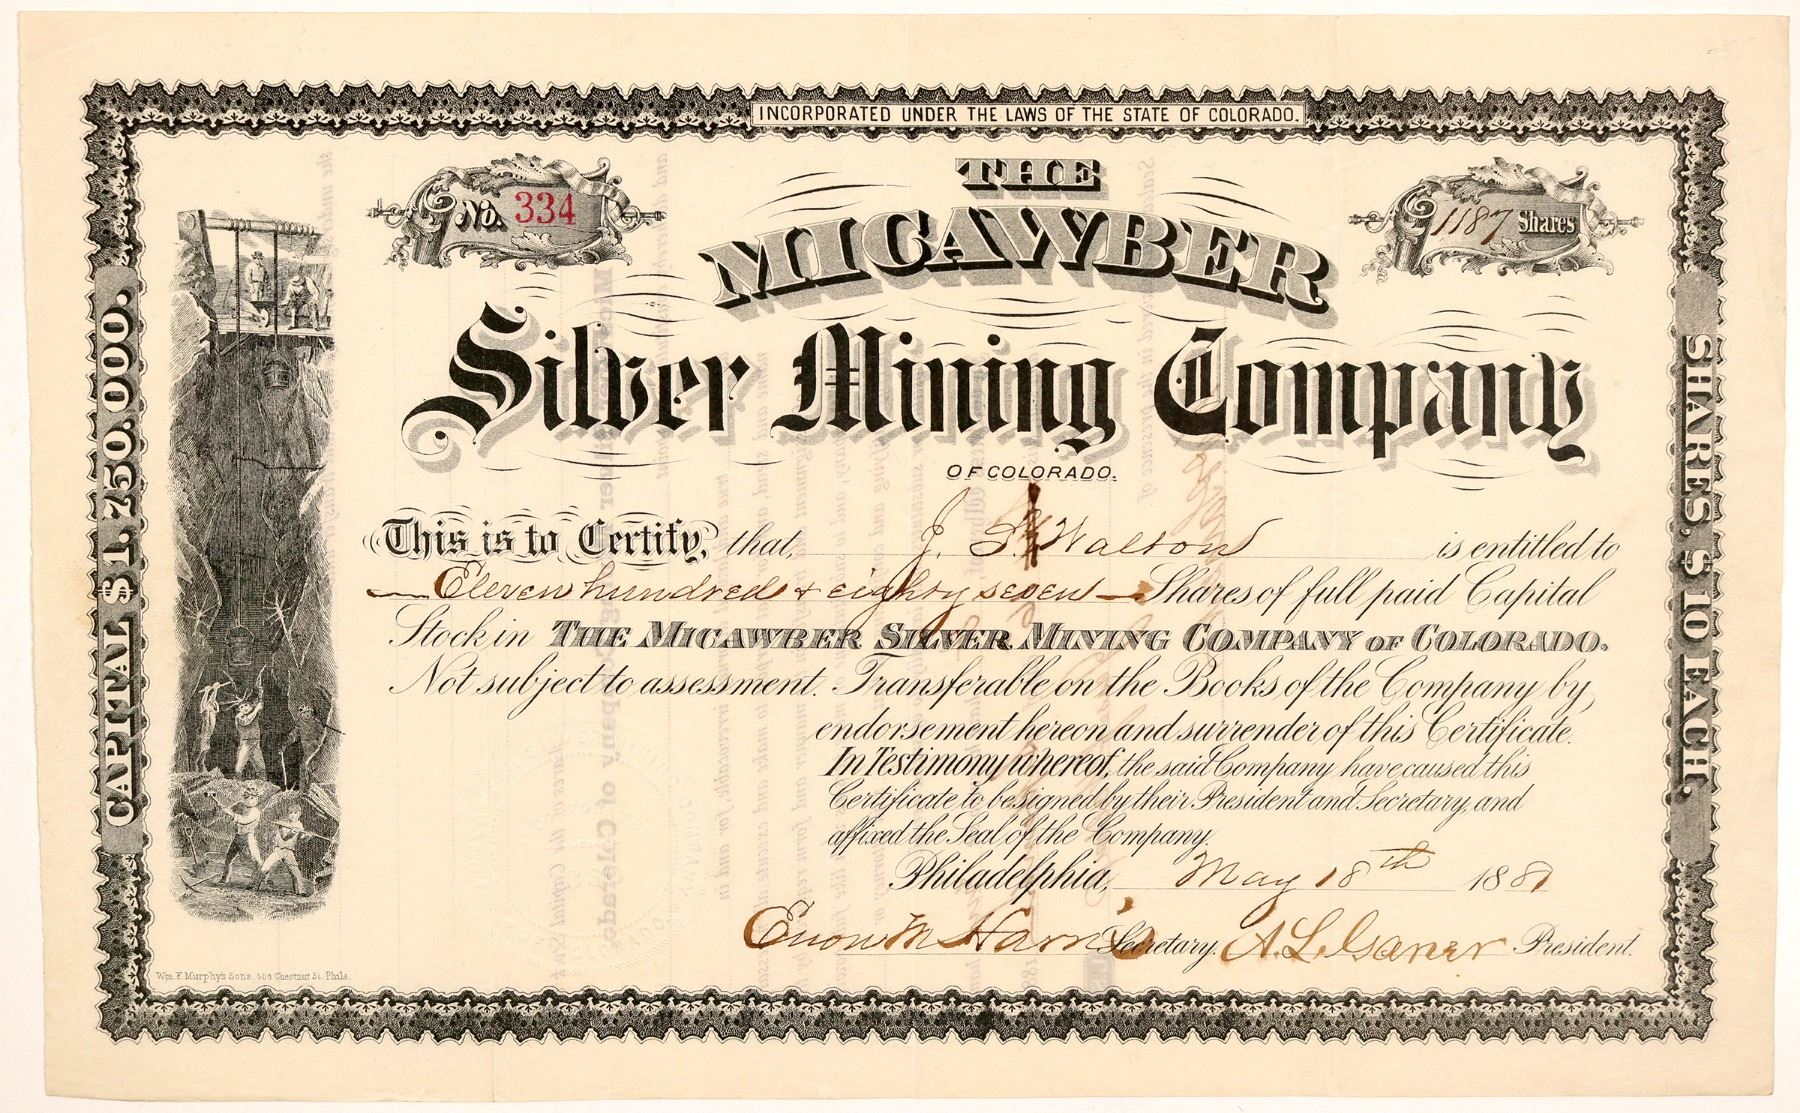 INCORPORATED UNDER THE LAWS OF THE STATE OF COLORADO.
No. 334
1187 Shares
THE
MICAWBER
Silver Mining Company
OF COLORADO.
CAPITAL $1,750.000.
SHARES, $10 EACH.
This is to Certify, that J. Walton is entitled to
Eleven hundred + eighty seven Shares of full paid Capital
Stock in THE MICAWBER SILVER MINING COMPANY OF COLORADO.
Not subject to assessment. Transferable on the Books of the Company by,
endorsement hereon and surrender of this Certificate.
In Testimony whereof, the said Company have caused this
Certificate to be signed by their President and Secretary, and
affixed the Seal of the Company.
Philadelphia, May 18th 1881
Enon M Harris Secretary. A. L. President.
Wm. F. Murphy's Sons, 509 Chestnut St. Phila.